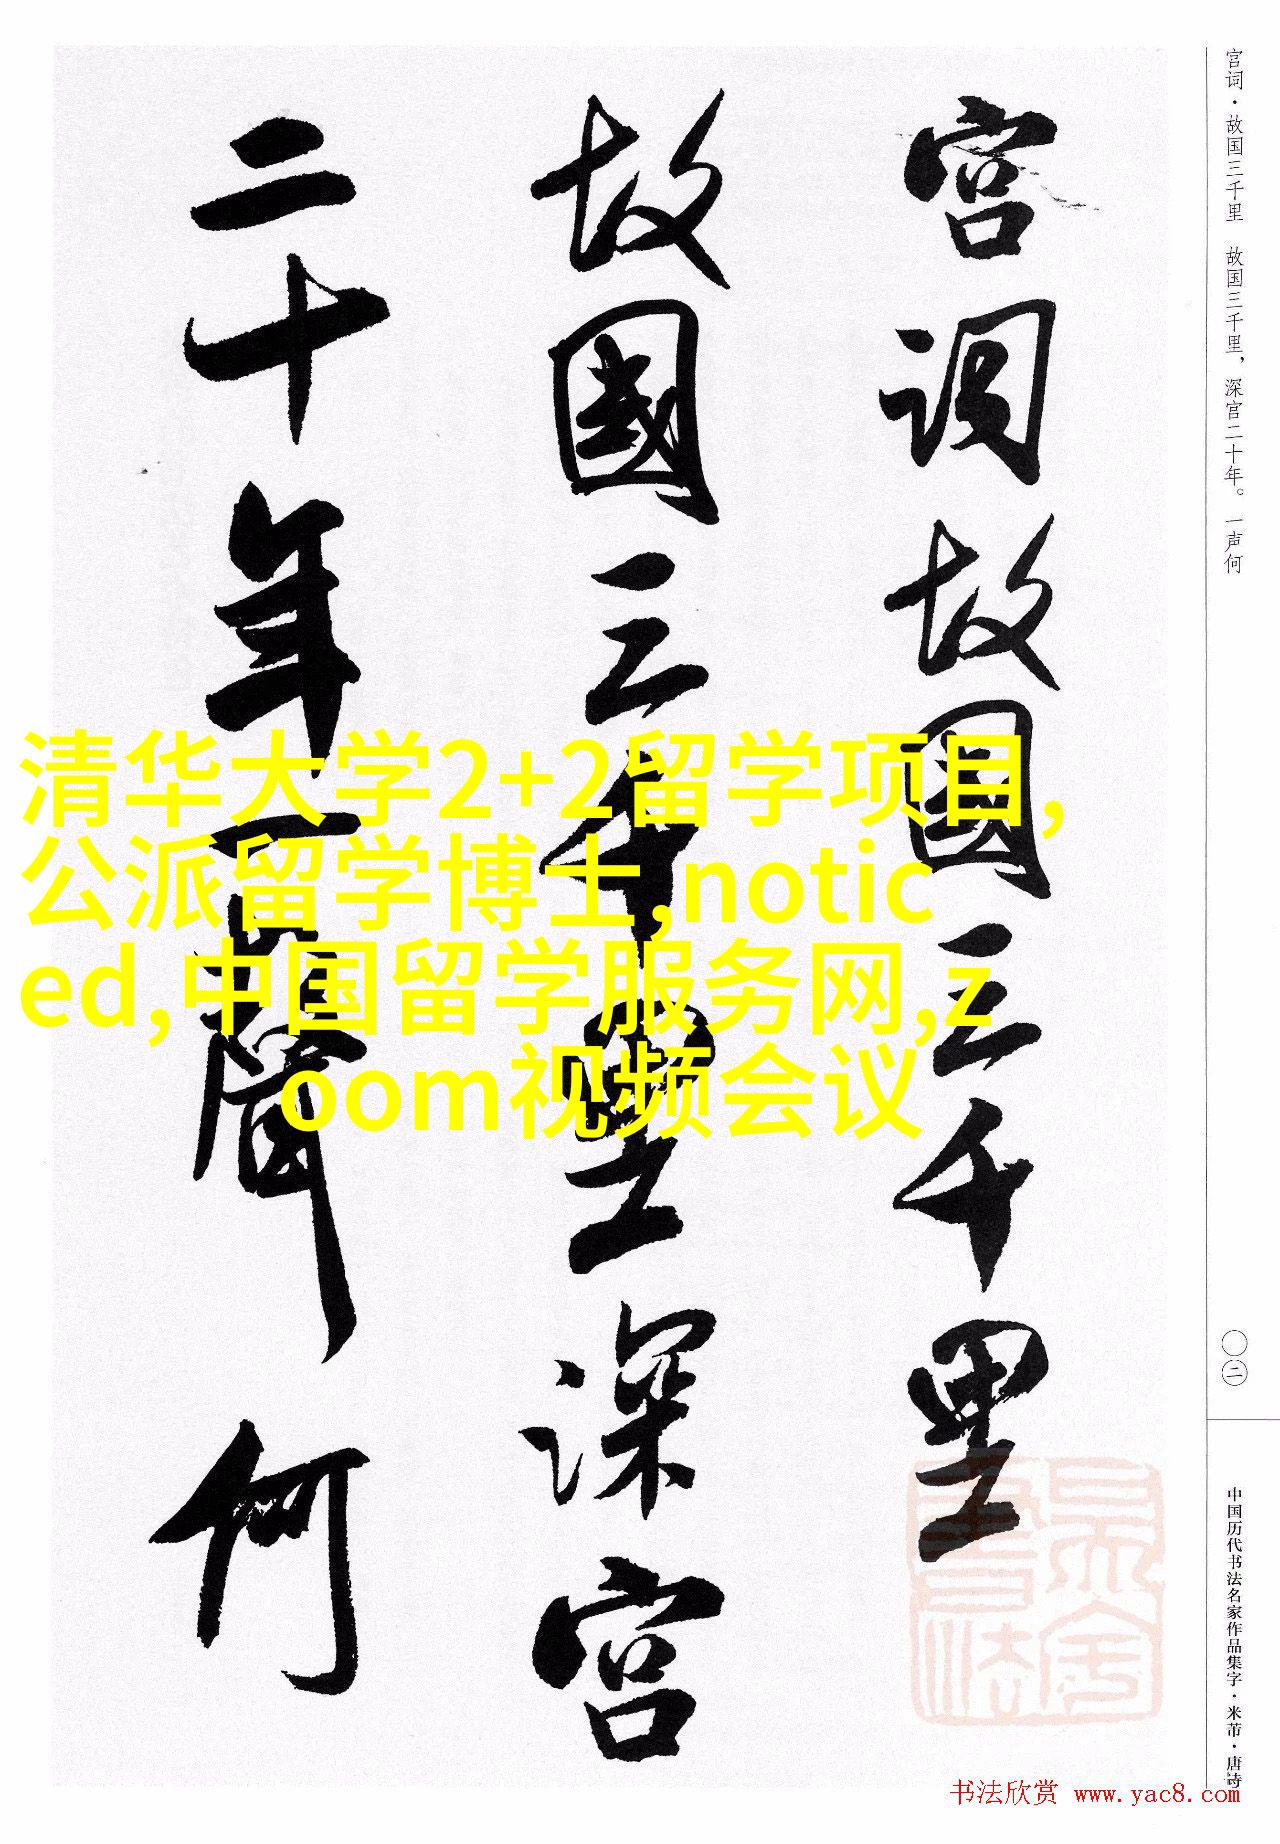 宫词·故国三千里 故国三千里，深宫二十年。一声何
宫词故国三千里
故國三千里深宫
二十年一聲何
清华大学2+2留学项目,
公派留学博士,notic
ed,中国留学服务网,z
oom视频会议
〇二
中国历代书法名家作品集字·米芾·唐诗
书法欣赏 www.yac8.com